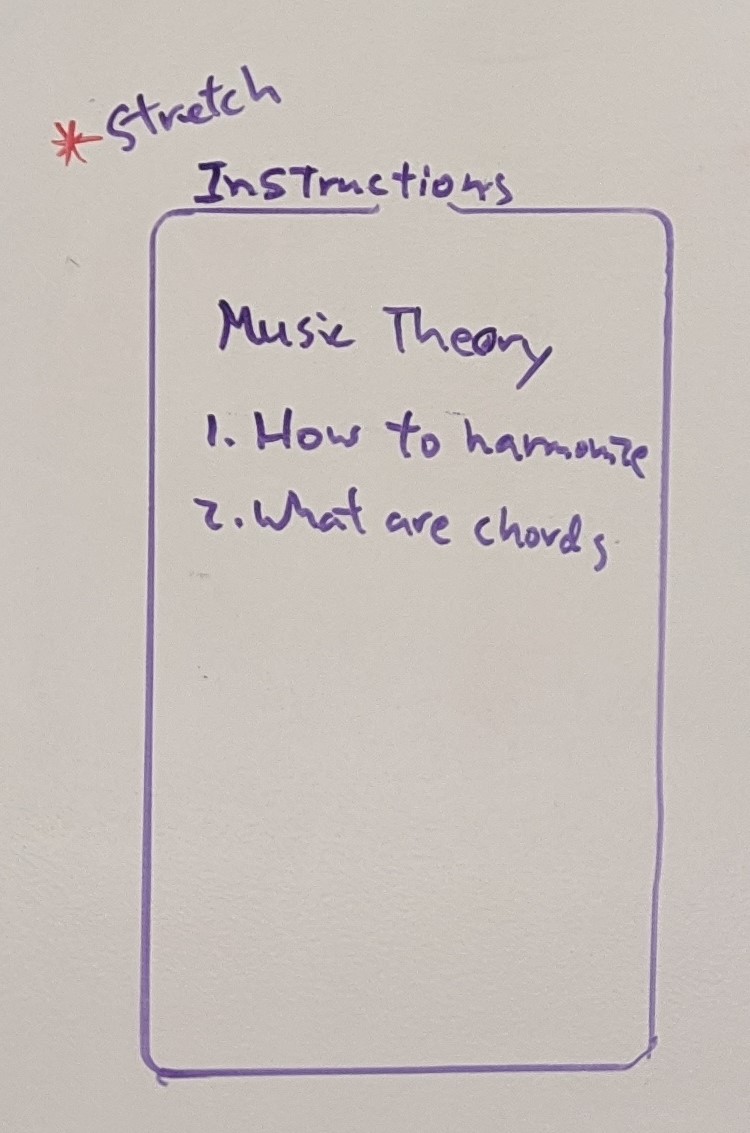 * Stretch
Instructions
Music Theory
1. How to harmonize
2. What are chords